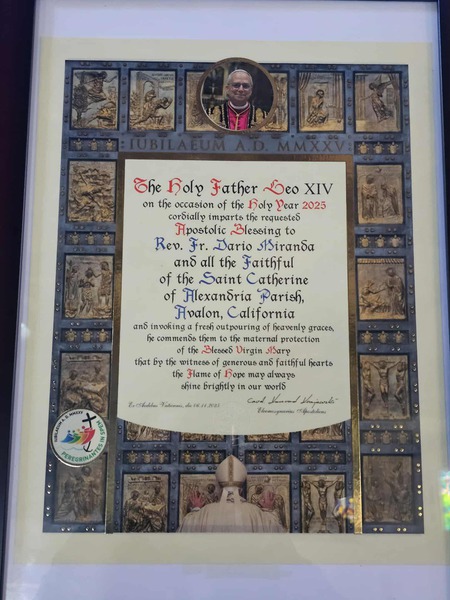 IUBILAEUM A.D. MMXXV
The Holy Father Leo XIV
on the occasion of the Holy Year 2025
cordially imparts the requested
Apostolic Blessing to
Rev. Fr. Dario Miranda
and all the Faithful
of the Saint Catherine
of Alexandria Parish,
Avalon, California
and invoking a fresh outpouring of heavenly graces,
he commends them to the maternal protection
of the Blessed Virgin Mary
that by the witness of generous and faithful hearts
the Flame of Hope may always
shine brightly in our world
Ex Aedibus Vaticanis, die
Eleemosynarius Apostolicus
IUBILAEUM A.D. MMXXV
PEREGRINANTES IN SPEM